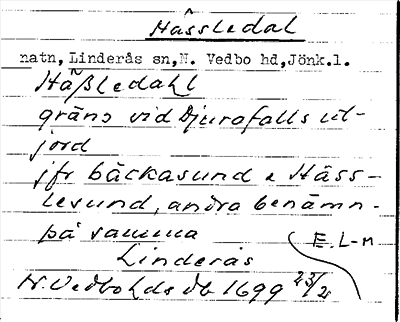 Hässledal
natn, Linderås sn, N. Vedbo hd, Jönk.l.
Häßledahl
gräns vid Djurafalls ut-
jord
jfr bäckasund e Häss-
lesund, andra benämn.
på samma
Linderås
N. Vedbo hds db 1699 23/2
E. L-m